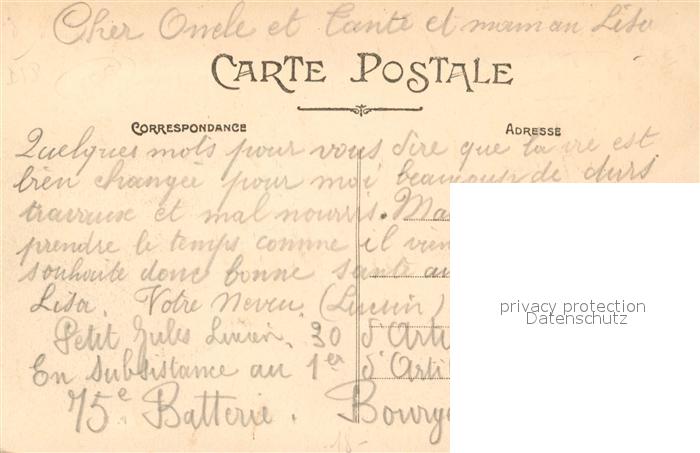 Cher Oncle et Tante et maman Lisa
CARTE POSTALE
CORRESPONDANCE
ADRESSE
Quelques mots pour vous dire que la vie est
bien changée pour moi beaucoup de durs
travaux et mal nourris. Ma
prendre le temps comme il vien
souhaite donc bonne santé au
Lisa. Votre Neveu (Lucien)
Petit Jules Lucien. 30 d'Arti
En Subsistance au 1er d'Arti
75e Batterie. Bourg
privacy protection
Datenschutz